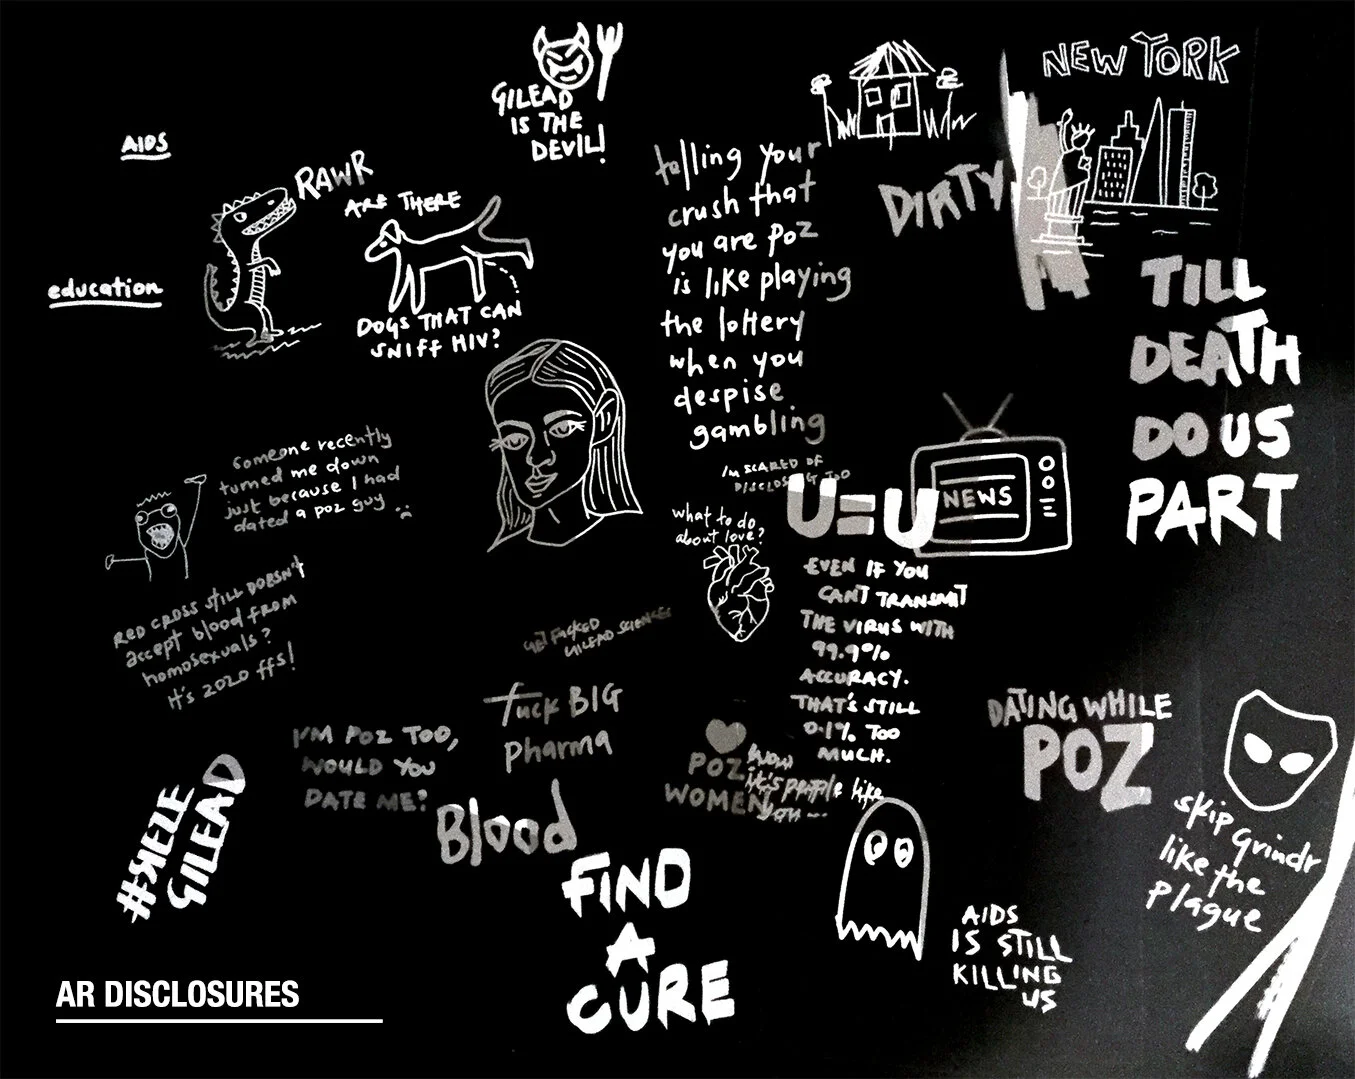 GILEAD
IS THE
DEVIL!
NEW YORK
AIDS
RAWR
ARE THERE
DOGS THAT CAN
SNIFF HIV?
education
telling your
crush that
you are poz
is like playing
the lottery
when you
despise
gambling
DIRTY
TILL
DEATH
DO US
PART
Someone recently
turned me down
just because I had
dated a poz guy :(
I'M SCARED OF
DISCLOSING TOO
U=U
NEWS
what to do
about love?
EVEN IF YOU
CANT TRANSMIT
THE VIRUS WITH
99.9%
ACCURACY.
THAT'S STILL
0.1% TOO
MUCH.
RED CROSS STILL DOESN'T
accept blood FROM
homosexuals?
It's 2020 ffs!
GET FUCKED
GILEAD SCIENCES
fuck BIG
pharma
I'M POZ TOO,
WOULD YOU
DATE ME?
POZ
WOMEN
it's people like
you ...
DATING WHILE
POZ
skip grindr
like the
plague
#REZE
GILEAD
Blood
FIND
A
CURE
AIDS
IS STILL
KILLING
US
AR DISCLOSURES